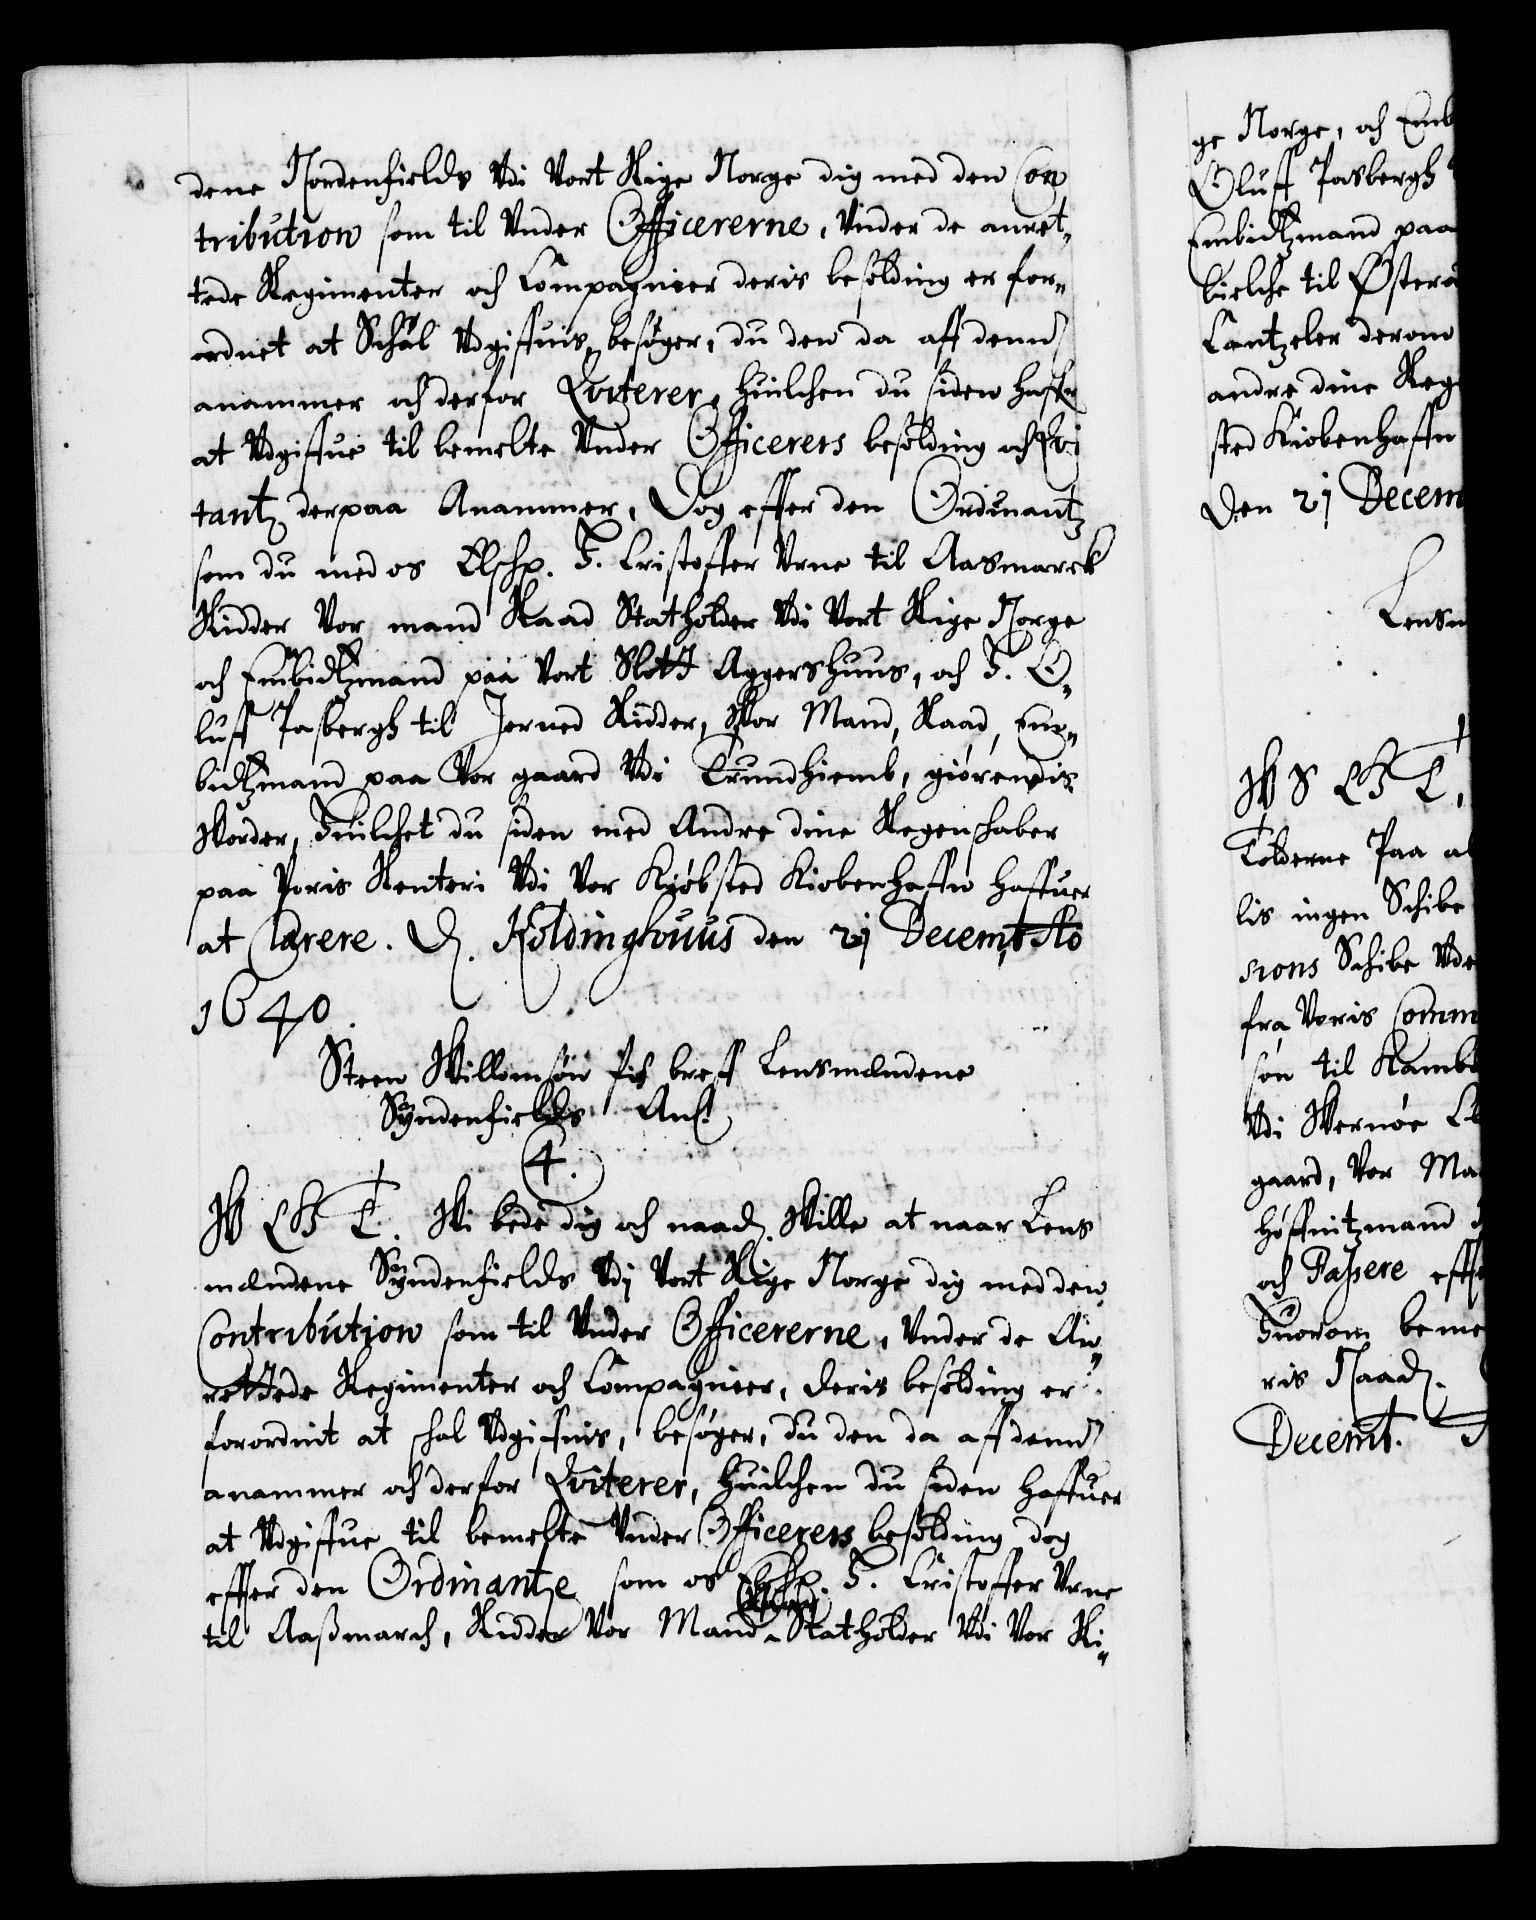 dene Nordenfields Vdi Vort Rige Norge dig med den Con
tribution som til Vnder Officererne, Vnder de anret„
tede Regimenter och Compagnier deris besolding er for„
ordnet at Schal Vdgiffuis, besøger, du den da aff dennd
anammer och derfor Qviterer, huilchen du siden haffr
at Vdgiffue til bemelte Vnder Officerers besolding och Qvi
tantz derpaa Anammer, Dog effter den Ordinantz
som du med os Elschp. H. Cristoffer Vrne til Aasmarck
Ridder Vor mand Raad Statholder Vdi Vort Rige Norge
och Embidtzmand paa Vort Slott Aggershuus, och H. O„
luff Pasbergh til Jerned Ridder, Wor Mand, Raad, Em„
bidtzmand paa Vor gaard Vdi Trundhiemb, giørendis
Worder, Huilchet du siden med Andre dine Regenschaber
paa Voris Renteri Vdi Vor Kiøbsted Kiobenhaffn haffuer
at Clarere. D. Koldinghuus den 21 Decemt. Ao
1640.
Steen Willomsøn fich breff Lensmændene
Syndenfields Anl.
4.
W G G T. Wi bede dig och naad. Wille at naar Lens
mændene Syndenfields Vdj Vort Rige Norge dig med den
Contribution som til Vnder Officererne, Vnder de An„
rettede Regimenter och Compagnier, deris besolding er
forordnit at schal Vdgiffuis, besøger, du den da aff dennd
anammer och derfor Qviterer, huilchen du siden haffuer
at Vdgiffue til bemelte Vnder Officerers besolding dog
effter den Ordinantze som os Elschp. H. Cristoffer Vrne
til Aaßmarch, Ridder Vor Mand Statholder Vdi Vor Ri„
ge Norge, och Emb
Oluff Pasbergh
Embidtzmand paa
bielche til Østera
Cantzeler derom
andre dine Reg
sted Kiobenhaffn
Den 21 Decem
Lensm
W S G G T,
Tolderne Paa al
lis ingen Schibe
sions Schibe Vde
fra Voris Comm
søn til Rambe
Vdi Wernøe Cl
gaard, Vor Ma
høffuitzmand
och Passere effte
Huorom beme
ris Naad.
Decemt.